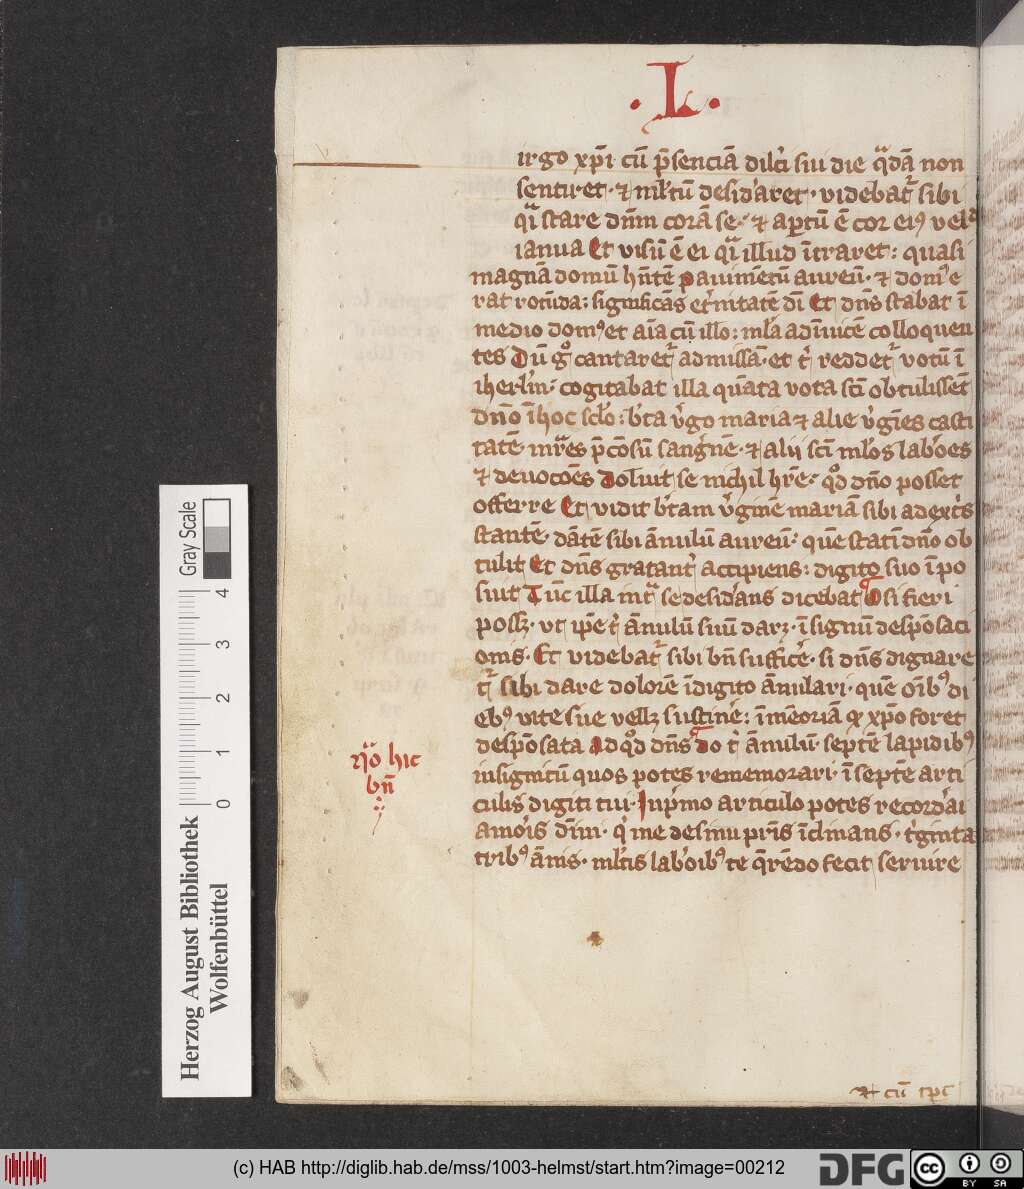 · L ·
irgo xp̄i cū p̄senciā dilc̄i sui die q̄dā non
sentiret · ⁊ ml̄tū desid'aret · videbat' sibi
q̄i stare dn̄m corā se · ⁊ ap̄tū ē cor eiꝰ vel'd
ianua Et visū ē ei q̄i illud ītraret : quasi
magnā domū hn̄tē pauimētū aureū · ⁊ domꝰ e
rat rotūda : significās et'nitatē dī Et dn̄s stabat ī
medio domꝰ et aīa cū illo : ml̄a adīuicē colloquen
tes Dū g° cantaret' ad missā · et t' reddet' votū ī
iherl'm · cogitabat illa quāta vota sc̄i obtulissēt
dn̄o ī hoc scl'o : bt̄a v'go maria ⁊ alie v'gīes casti
tatē mr̄es p̄cōsū sang'nē · ⁊ alii sc̄i ml̄os labōes
⁊ deuocōes doluit se nichil hr̄e · qd̄ dn̄o posset
offerre Et vidit bt̄am v'ginē mariā sibi a dext's
stantē · dātē sibi ānulū aureū · quē statī dn̄o ob
tulit Et dn̄s gratant' accipiens : digito suo īpo
suit Tūc illa int' se desid'ans dicebat O si fieri
possꝫ · vt ip̄e t' ānulū suū darꝫ · ī signū despōsaci
onis · Et videbat' sibi bn̄ suffic'e · si dn̄s dignare
t' sibi dare dolorē ī digito ānulari · quē oīb₉ di
eb₉ vite sue vellꝫ sustin'e : ī mēoriā qꝫ xp̄o foret
despōsata Ad qd̄ dn̄s do t' ānulū · septē lapidib₉
insignitū quos potes rememorari · ī septē arti
culis digiti tui · In p'mo articulo potes record'ai
amōis diīni · q' me de sinu pr̄is īclinans · t'ginta
trib₉ ānis · ml̄tis labōib₉ te q̄rēdo fecit seruire
hic
bn̄
⁊ cū ip̄e
Herzog August Bibliothek
Wolfenbüttel
0 1 2 3 4
Gray Scale
(c) HAB http://diglib.hab.de/mss/1003-helmst/start.htm?image=00212
DFG
cc BY SA